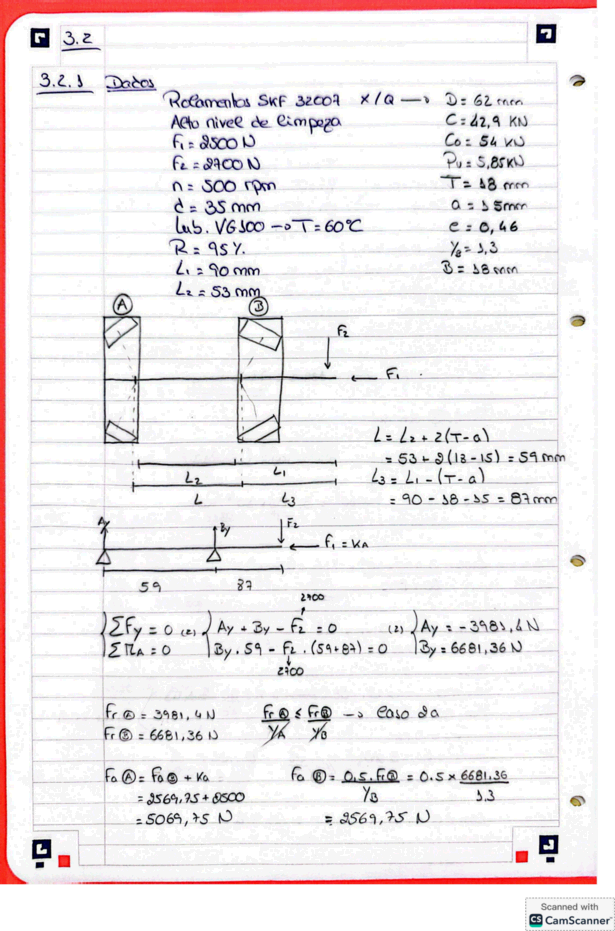 3.2
3.2.1 Dados
Rolamentos SKF 32007 X/Q → D = 62 mm
Alto nivel de limpeza C = 42,9 KN
F1 = 2500 N C0 = 54 KN
F2 = 2700 N Pu = 5,85 KN
n = 500 rpm T = 18 mm
d = 35 mm a = 15 mm
Lub. VG100 → T = 60°C e = 0,46
R = 95 %. Y2 = 1,3
L1 = 90 mm B = 18 mm
L2 = 53 mm
A B
F2
F1
L = L2 + 2(T-a)
= 53 + 2(18-15) = 59 mm
L2 L1
L3 = L1 - (T-a)
L L3
= 90 - 18 - 15 = 87 mm
Ay By F2
F1 = KA
59 87
2700
ΣFy = 0 (=) Ay + By - F2 = 0 (=) Ay = -3981,4 N
ΣMA = 0 By . 59 - F2 . (59+87) = 0 By = 6681,36 N
2700
Fr A = 3981,4 N Fr A / YA ≤ Fr B / YB → Caso 2a
Fr B = 6681,36 N
Fa A = Fa B + Ka Fa B = 0,5 . Fr B / YB = 0.5 × 6681.36 / 1.3
= 2569,75 + 2500
= 5069,75 N = 2569,75 N
Scanned with
CS CamScanner